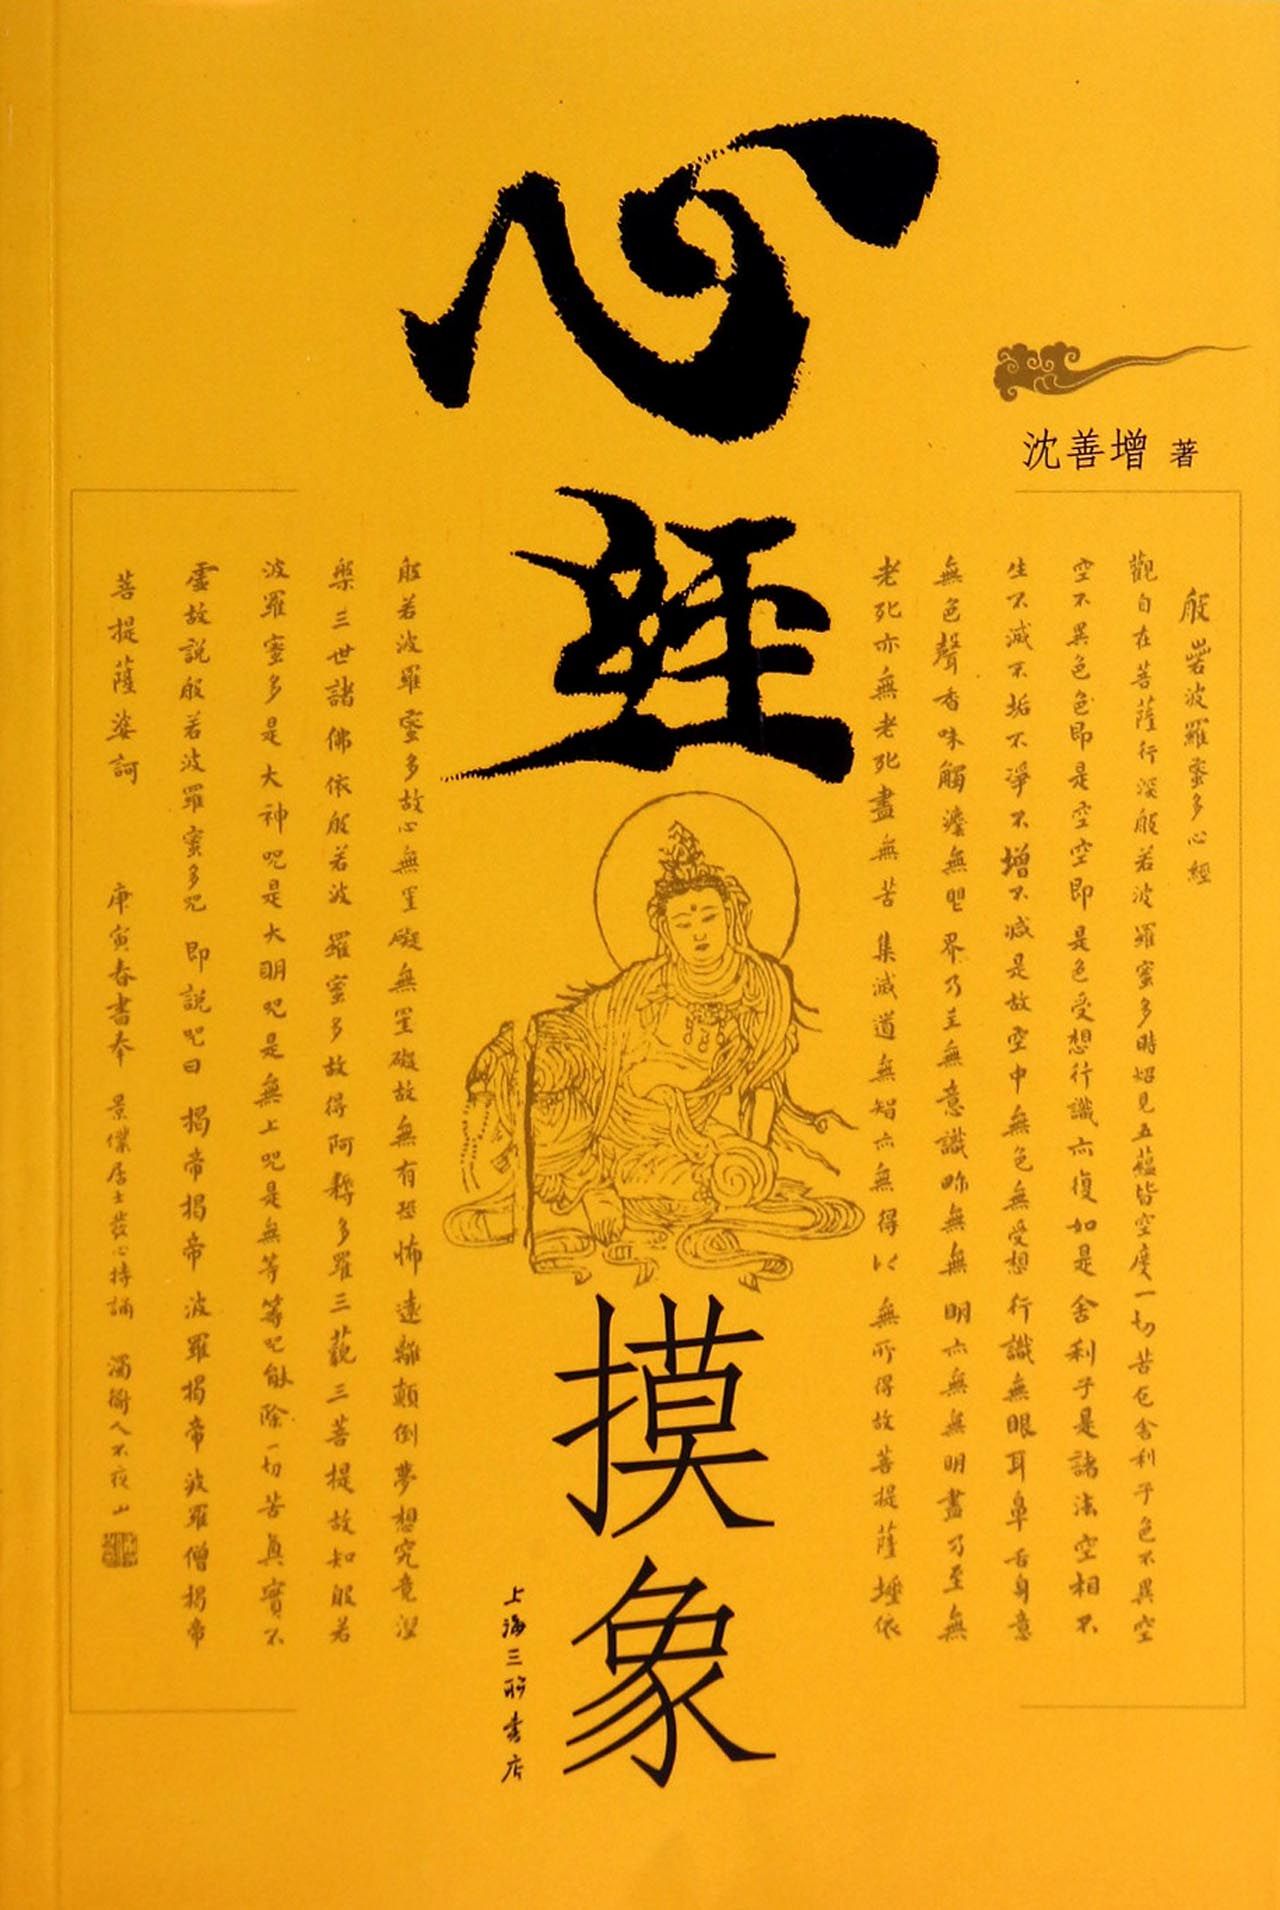 心
經
摸
象
沈善增 著
般若波羅蜜多心經
觀自在菩薩行深般若波羅蜜多時照見五蘊皆空度一切苦厄舍利子色不異空
空不異色色即是空空即是色受想行識亦復如是舍利子是諸法空相不
生不滅不垢不淨不增不減是故空中無色無受想行識無眼耳鼻舌身意
無色聲香味觸法無眼界乃至無意識界無無明亦無無明盡乃至無
老死亦無老死盡無苦集滅道無智亦無得以無所得故菩提薩埵依
般若波羅蜜多故心無罣礙無罣礙故無有恐怖遠離顛倒夢想究竟涅
槃三世諸佛依般若波羅蜜多故得阿耨多羅三藐三菩提故知般若
波羅蜜多是大神咒是大明咒是無上咒是無等等咒能除一切苦真實不
虛故說般若波羅蜜多咒即說咒曰揭帝揭帝波羅揭帝波羅僧揭帝
菩提薩婆訶 庚寅春書奉 居士發心持誦 人不夜山
上海三聯書店